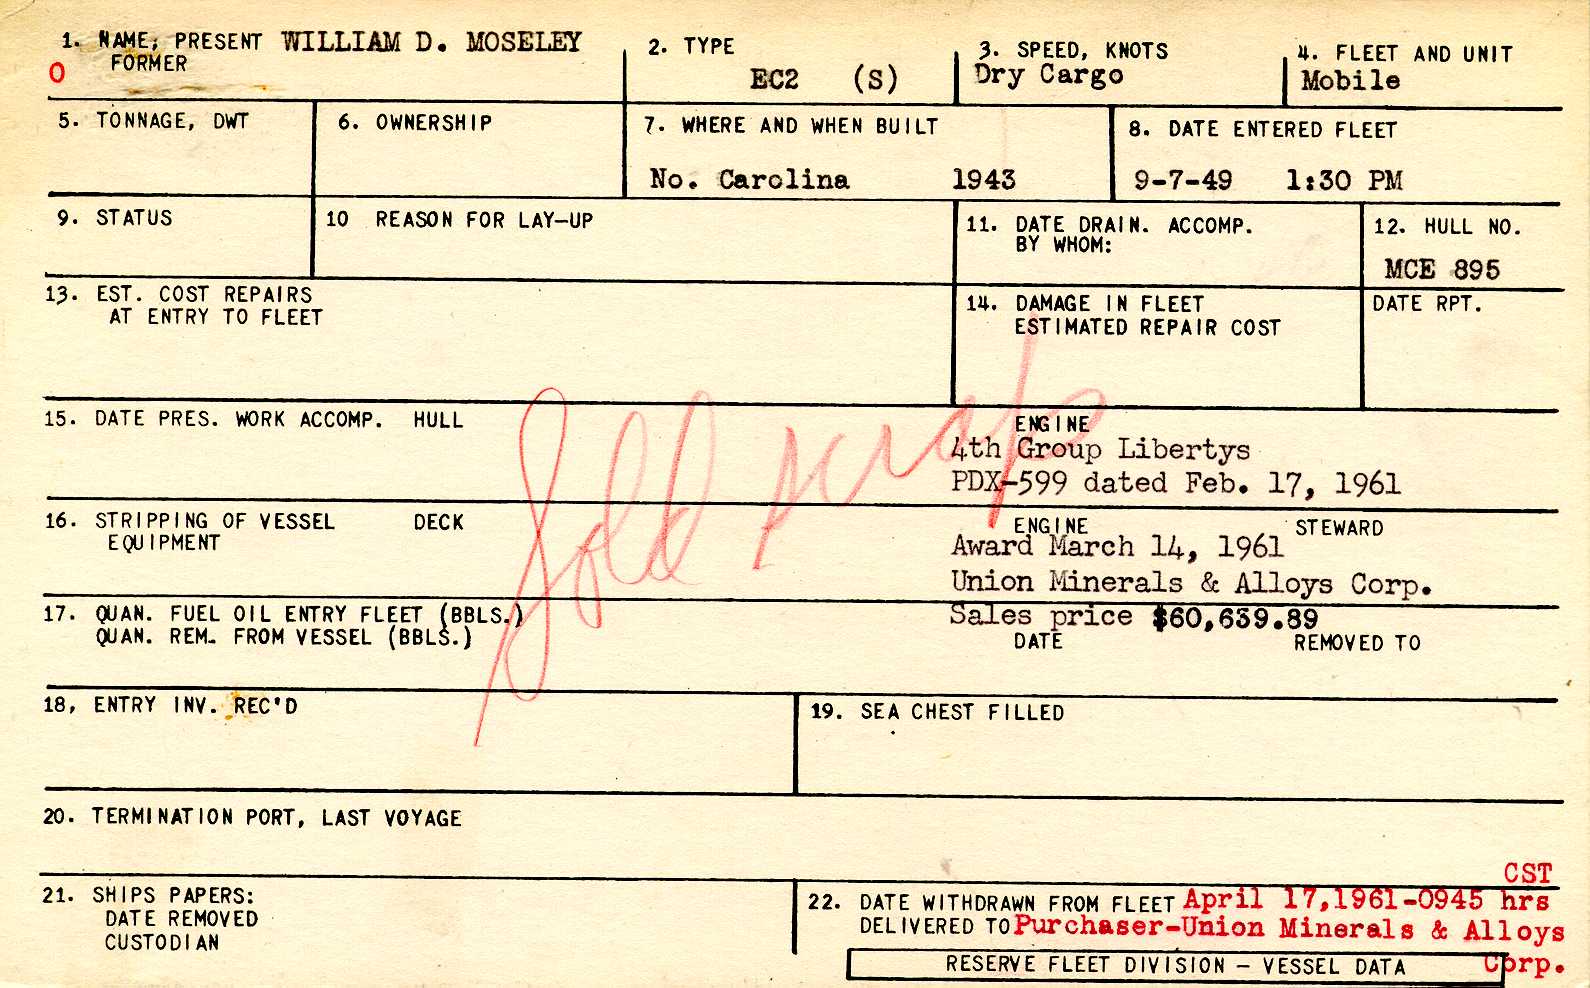 1. NAME; PRESENT WILLIAM D. MOSELEY
FORMER
O
2. TYPE
EC2 (S)
3. SPEED, KNOTS
Dry Cargo
4. FLEET AND UNIT
Mobile
5. TONNAGE, DWT
6. OWNERSHIP
7. WHERE AND WHEN BUILT
No. Carolina 1943
8. DATE ENTERED FLEET
9-7-49 1:30 PM
9. STATUS
10 REASON FOR LAY-UP
11. DATE DRAIN. ACCOMP.
BY WHOM:
12. HULL NO.
MCE 895
13. EST. COST REPAIRS
AT ENTRY TO FLEET
14. DAMAGE IN FLEET
ESTIMATED REPAIR COST
DATE RPT.
Sold scrap
15. DATE PRES. WORK ACCOMP. HULL
ENGINE
4th Group Libertys
PDX-599 dated Feb. 17, 1961
16. STRIPPING OF VESSEL DECK
EQUIPMENT
ENGINE STEWARD
Award March 14, 1961
Union Minerals & Alloys Corp.
17. QUAN. FUEL OIL ENTRY FLEET (BBLS.)
QUAN. REM. FROM VESSEL (BBLS.)
Sales price $60,639.89
DATE REMOVED TO
18, ENTRY INV. REC'D
19. SEA CHEST FILLED
20. TERMINATION PORT, LAST VOYAGE
21. SHIPS PAPERS:
DATE REMOVED
CUSTODIAN
CST
22. DATE WITHDRAWN FROM FLEET April 17,1961-0945 hrs
DELIVERED TO Purchaser-Union Minerals & Alloys
Corp.
RESERVE FLEET DIVISION – VESSEL DATA